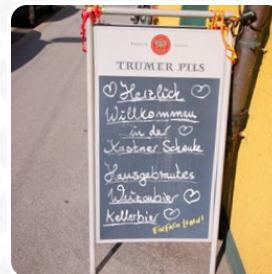 TRUMER PILS
Herzlich
Willkommen
in der
Kastner Schenke
Hausgebrautes
Weizenbier
Kellerbier
Einfach